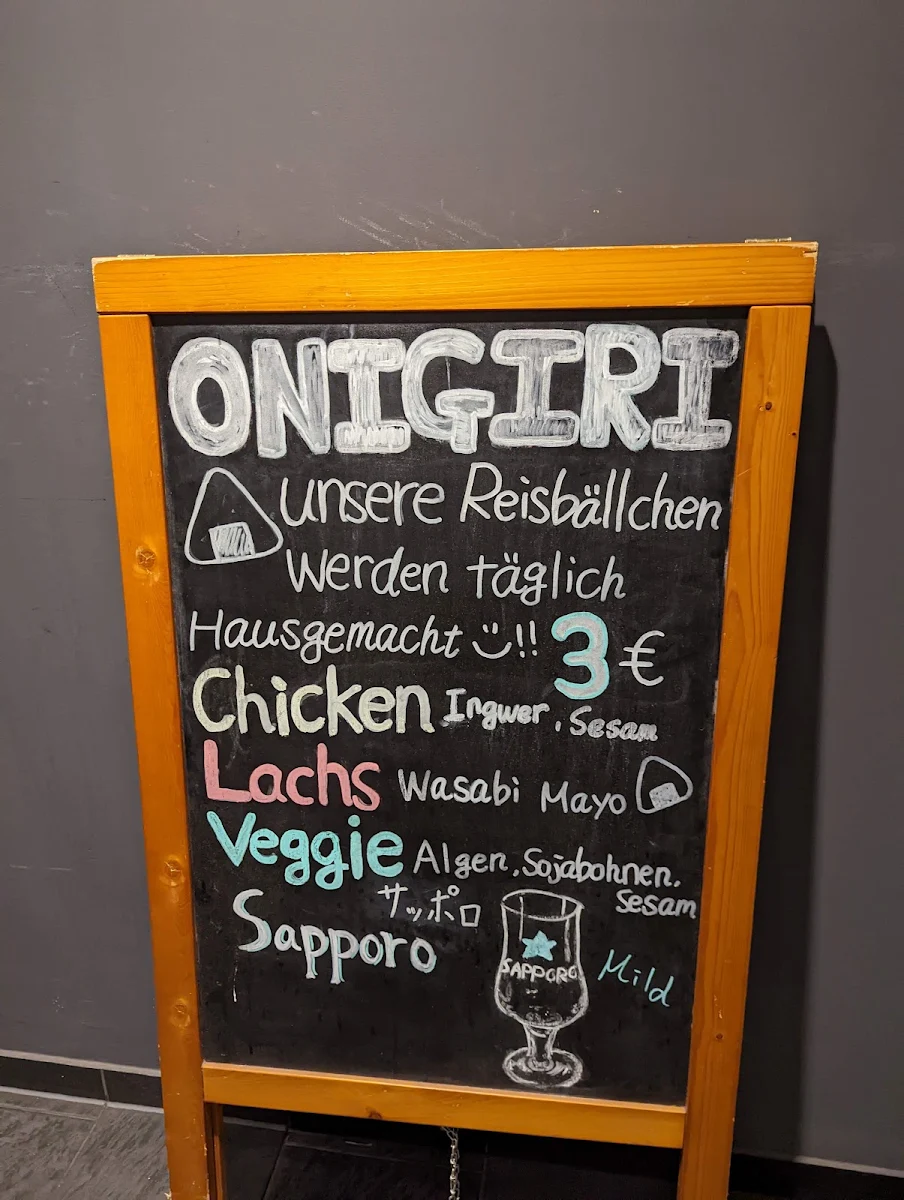 ONIGIRI
unsere Reisbällchen
Werden täglich
Hausgemacht !! 3 €
Chicken Ingwer, Sesam
Lachs Wasabi Mayo
Veggie Algen, Sojabohnen.
Sesam
サッポロ
Sapporo
SAPPORO
Mild